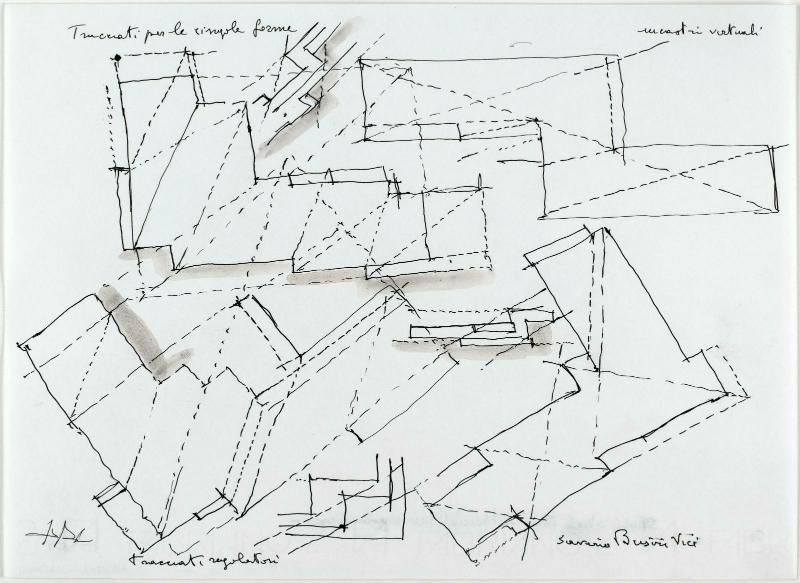 Tracciati per le singole forme
incastri virtuali
Tracciati regolatori
Saverio Busiri Vici